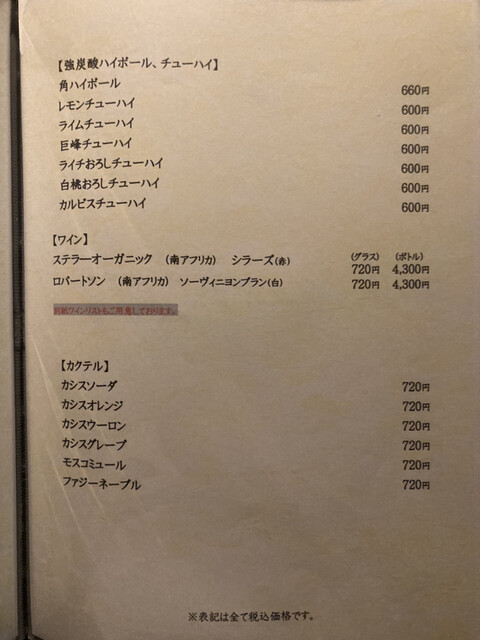 【強炭酸ハイボール、チューハイ】
角ハイボール 660円
レモンチューハイ 600円
ライムチューハイ 600円
巨峰チューハイ 600円
ライチおろしチューハイ 600円
白桃おろしチューハイ 600円
カルピスチューハイ 600円
【ワイン】
(グラス) (ボトル)
ステラーオーガニック (南アフリカ) シラーズ(赤) 720円 4,300円
ロバートソン (南アフリカ) ソーヴィニヨンブラン(白) 720円 4,300円
別紙ワインリストもご用意しております。
【カクテル】
カシスソーダ 720円
カシスオレンジ 720円
カシスウーロン 720円
カシスグレープ 720円
モスコミュール 720円
ファジーネーブル 720円
※表記は全て税込価格です。